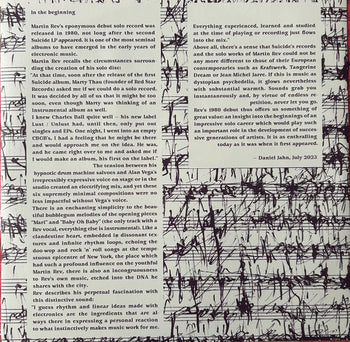 In the beginning
Martin Rev's eponymous debut solo record was
released in 1980, not long after the second
Suicide LP appeared. It is one of the most seminal
albums to have emerged in the early years of
electronic music.
Martin Rev recalls the circumstances surround-
ing the creation of his solo disc:
"At that time, soon after the release of the first
Suicide album, Marty Thau (founder of Red Star
Records) asked me if we could do a solo record.
It was decided by all of us that it might be too
soon, even though Marty was thinking of an
instrumental album as well.
I knew Charles Ball quite well – his new label
Lust / Unlust had, until then, only put out
singles and EPs. One night, I went into an empty
CBGB's. I had a feeling that he might be there
and would approach me on the idea. He was,
and he came right over to me and asked me if
I would make an album, his first on the label."
The tension between his
hypnotic drum machine salvoes and Alan Vega's
irrepressibly expressive voice on stage or in the
studio created an electrifying mix, and yet these
six supremely minimal compositions were no
less impactful without Vega's voice.
There is an enchanting simplicity to the beau-
tiful bubblegum melodies of the opening pieces
"Mari" and "Baby Oh Baby" (the only track with a
Rev vocal, everything else is instrumental). Like a
clandestine heart, embedded in dissonant tex-
tures and infinite rhythm loops, echoing the
doo-wop and rock 'n' roll songs at the tempe-
stuous epicentre of New York, the place which
had such a profound influence on the youthful
Martin Rev, there is also an incongruousness
to Rev's own music, etched into the DNA he
shares with the city.
Rev describes his perpetual fascination with
this distinctive sound:
"I guess rhythm and linear ideas made with
electronics are the ingredients that are al
ways there in expressing a personal reaction
to what instinctively makes music work for me.
Everything experienced, learned and studied
at the time of playing or recording just flows
into the mix."
Above all, there's a sense that Suicide's records
and the solo works of Martin Rev could not be
any more different to those of their European
contemporaries such as Kraftwerk, Tangerine
Dream or Jean Michel Jarre. If this is music as
dystopian psychedelia, it glows nevertheless
with substantial warmth. Sounds grab you
instantaneously and, by virtue of endless re
pension, never let you go.
Rev's 1980 debut thus offers us something of
great value: an insight into the beginnings of an
impressive solo career which would play such
an important role in the development of succes-
sive generations of artists. It is as enthralling
today as it was when it first appeared.
– Daniel Jahn, July 2023